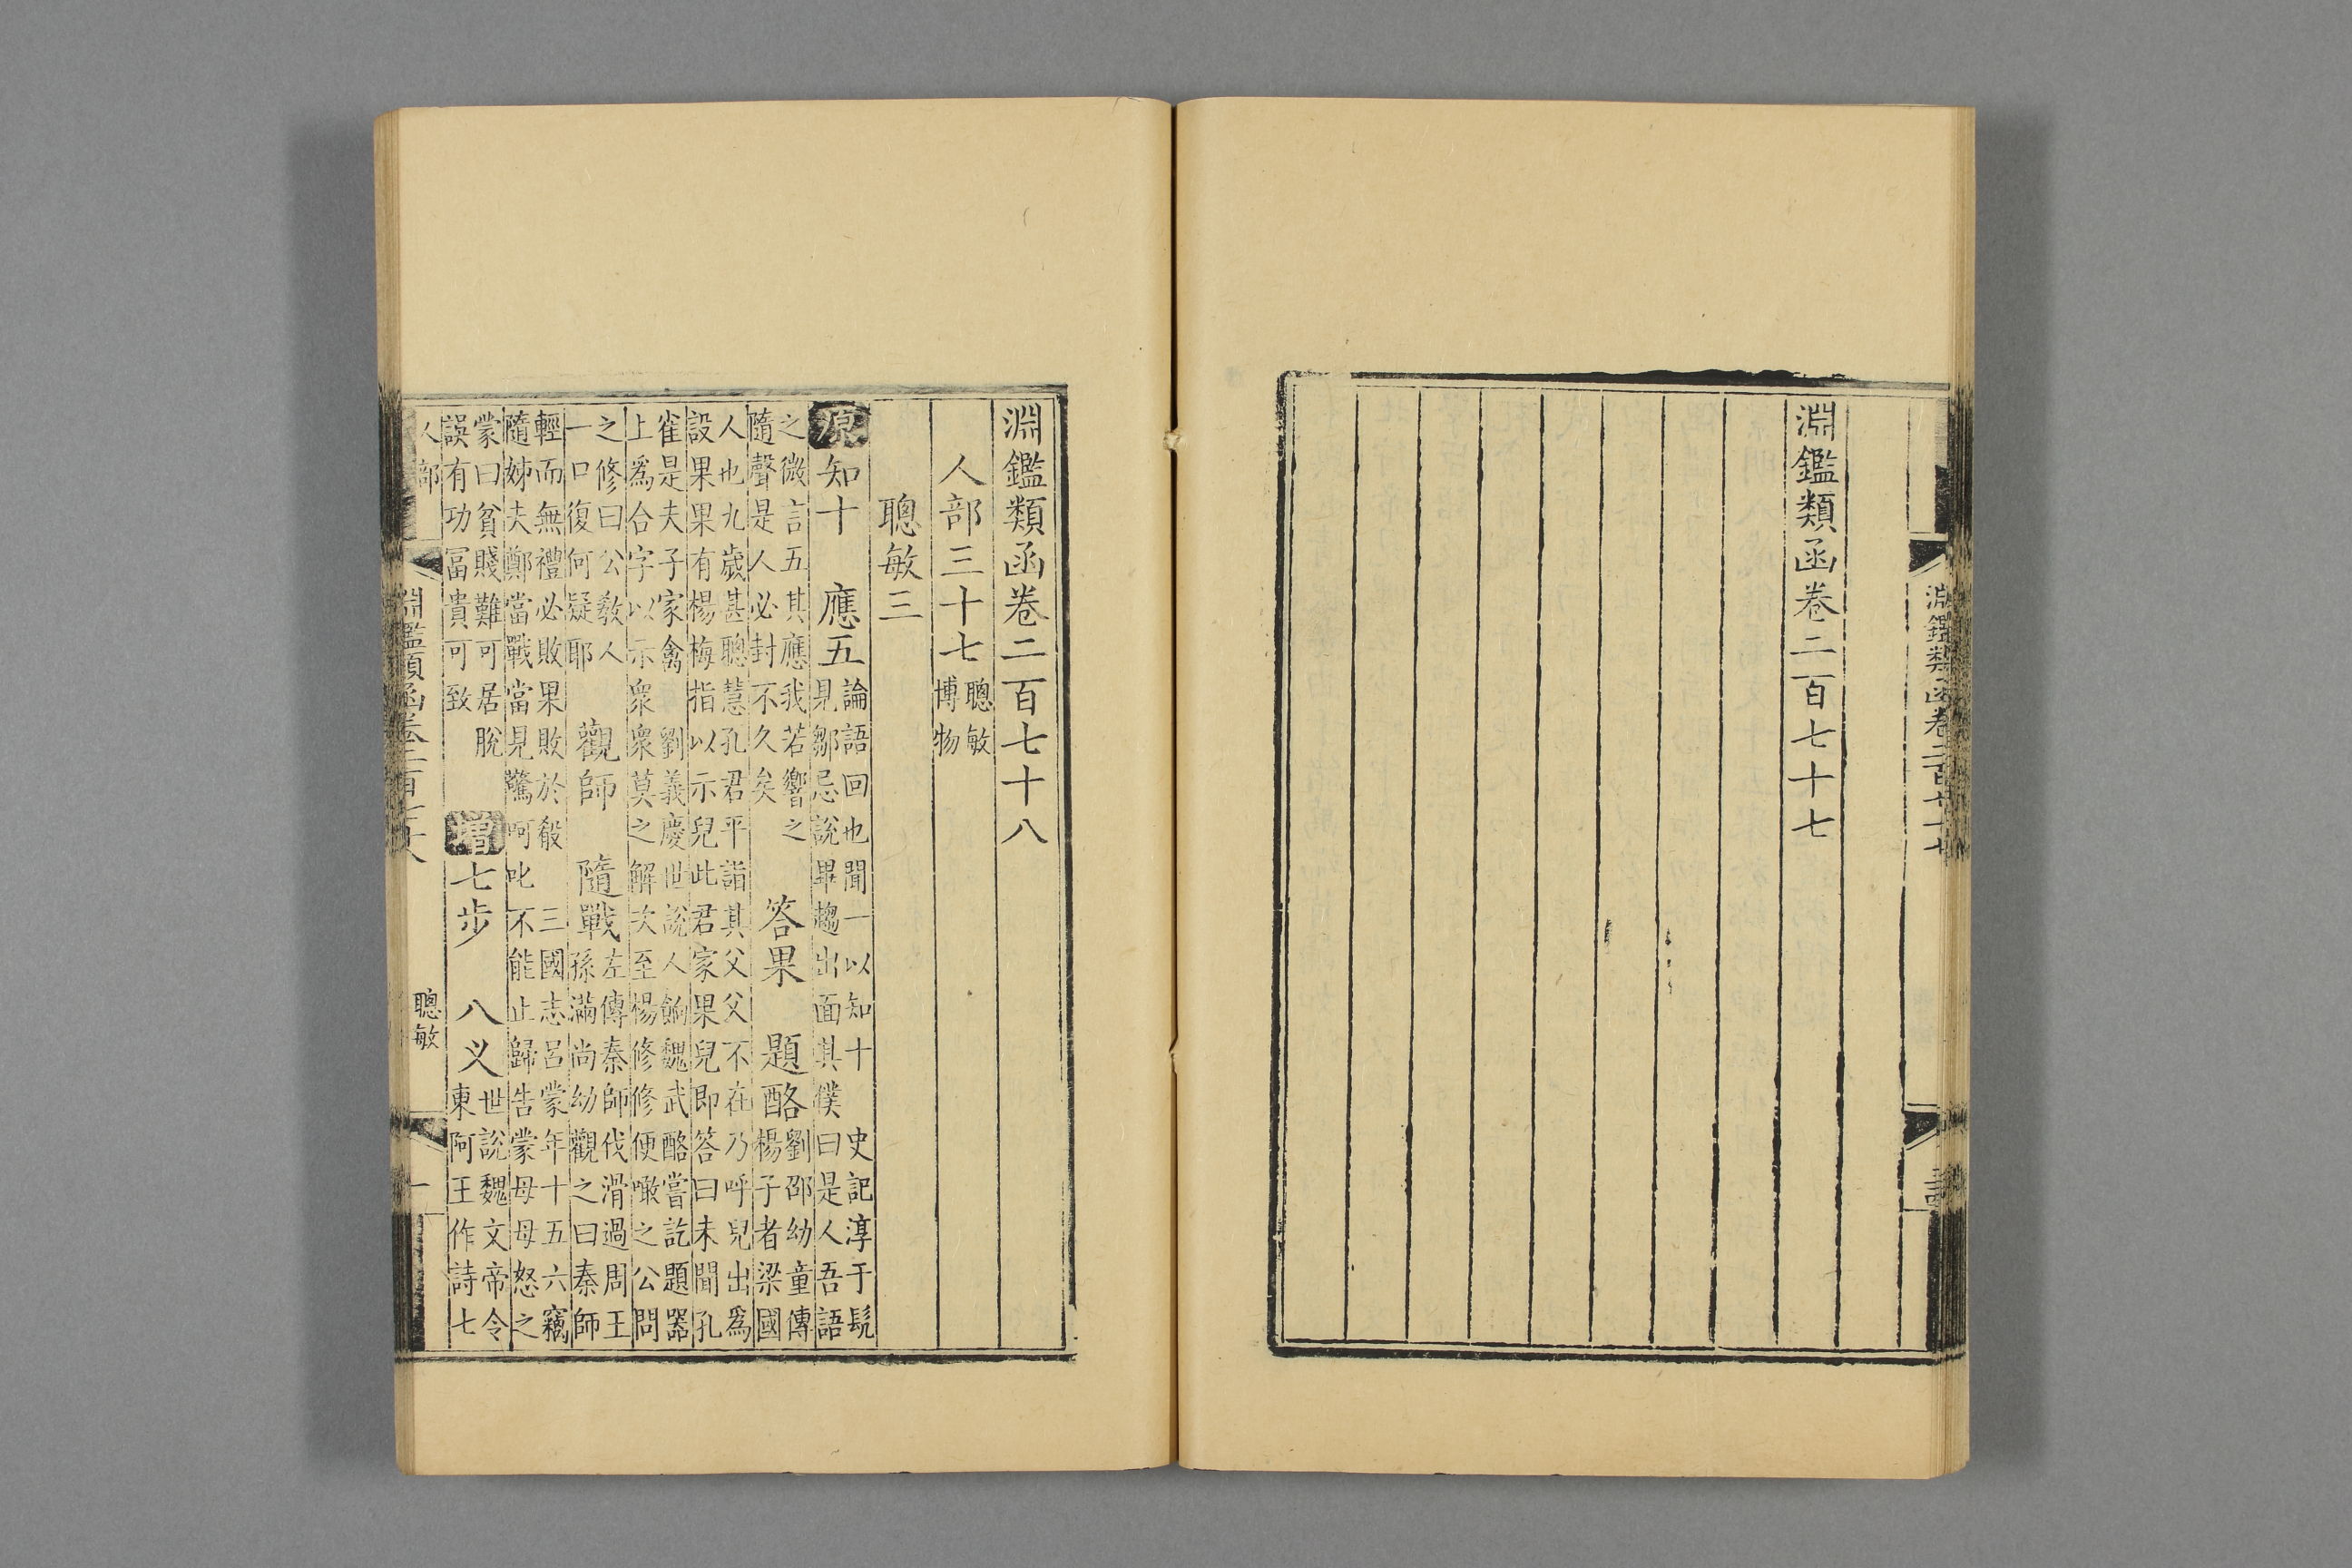 淵鑑類函卷二百七十七
淵鑑類函卷二百七十七
淵鑑類函卷二百七十八
人部三十七 聰敏
博物
聰敏三
源知十 應五
論語回也聞一以知十 史記淳于髡
見鄒忌說畢趨出面其僕曰是人吾語
之微言五其應我若響之
隨聲是人必封不久矣
答果 題酪
劉邵幼童傳
楊子者梁國
人也九歲甚聰慧孔君平詣其父父不在乃呼兒出爲
設果果有楊梅指以示兒此君家果兒即答曰未聞孔
雀是夫子家禽 劉義慶世說人餉魏武酪嘗訖題器
上爲合字以示衆衆莫之解次至楊修修便噉之公問
之修曰公教人
一口復何疑耶
觀師 隨戰
左傳秦師伐滑過周王
孫滿尚幼觀之曰秦師
輕而無禮必敗果敗於殽 三國志呂蒙年十五六竊
隨姊夫鄧當戰當見驚呵叱不能止歸告蒙母母怒之
蒙曰貧賤難可居脫
誤有功冨貴可致
增七步 八义
世說魏文帝令
東阿王作詩七
人部 淵鑑類函卷二百七十八 聰敏 一